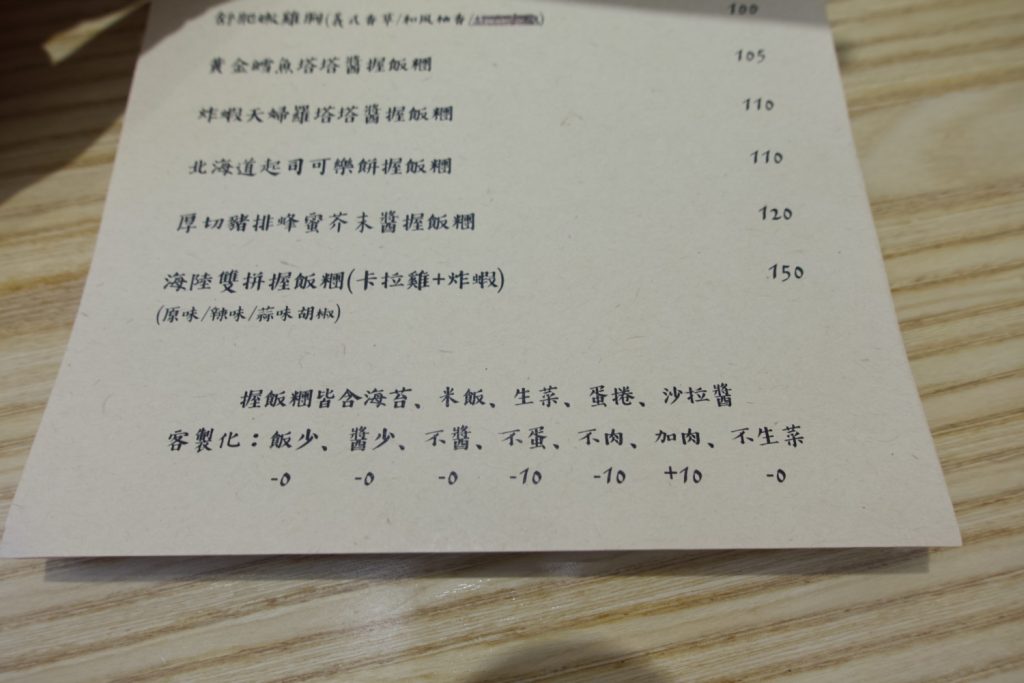 舒肥嫩雞胸(義式香草/和風柚香/
100
黃金鱈魚塔塔醬握飯糰 105
炸蝦天婦羅塔塔醬握飯糰 110
北海道起司可樂餅握飯糰 110
厚切豬排蜂蜜芥末醬握飯糰 120
海陸雙拼握飯糰(卡拉雞+炸蝦) 150
(原味/辣味/蒜味胡椒)
握飯糰皆含海苔、米飯、生菜、蛋捲、沙拉醬
客製化：飯少、醬少、不醬、不蛋、不肉、加肉、不生菜
-0 -0 -0 -10 -10 +10 -0